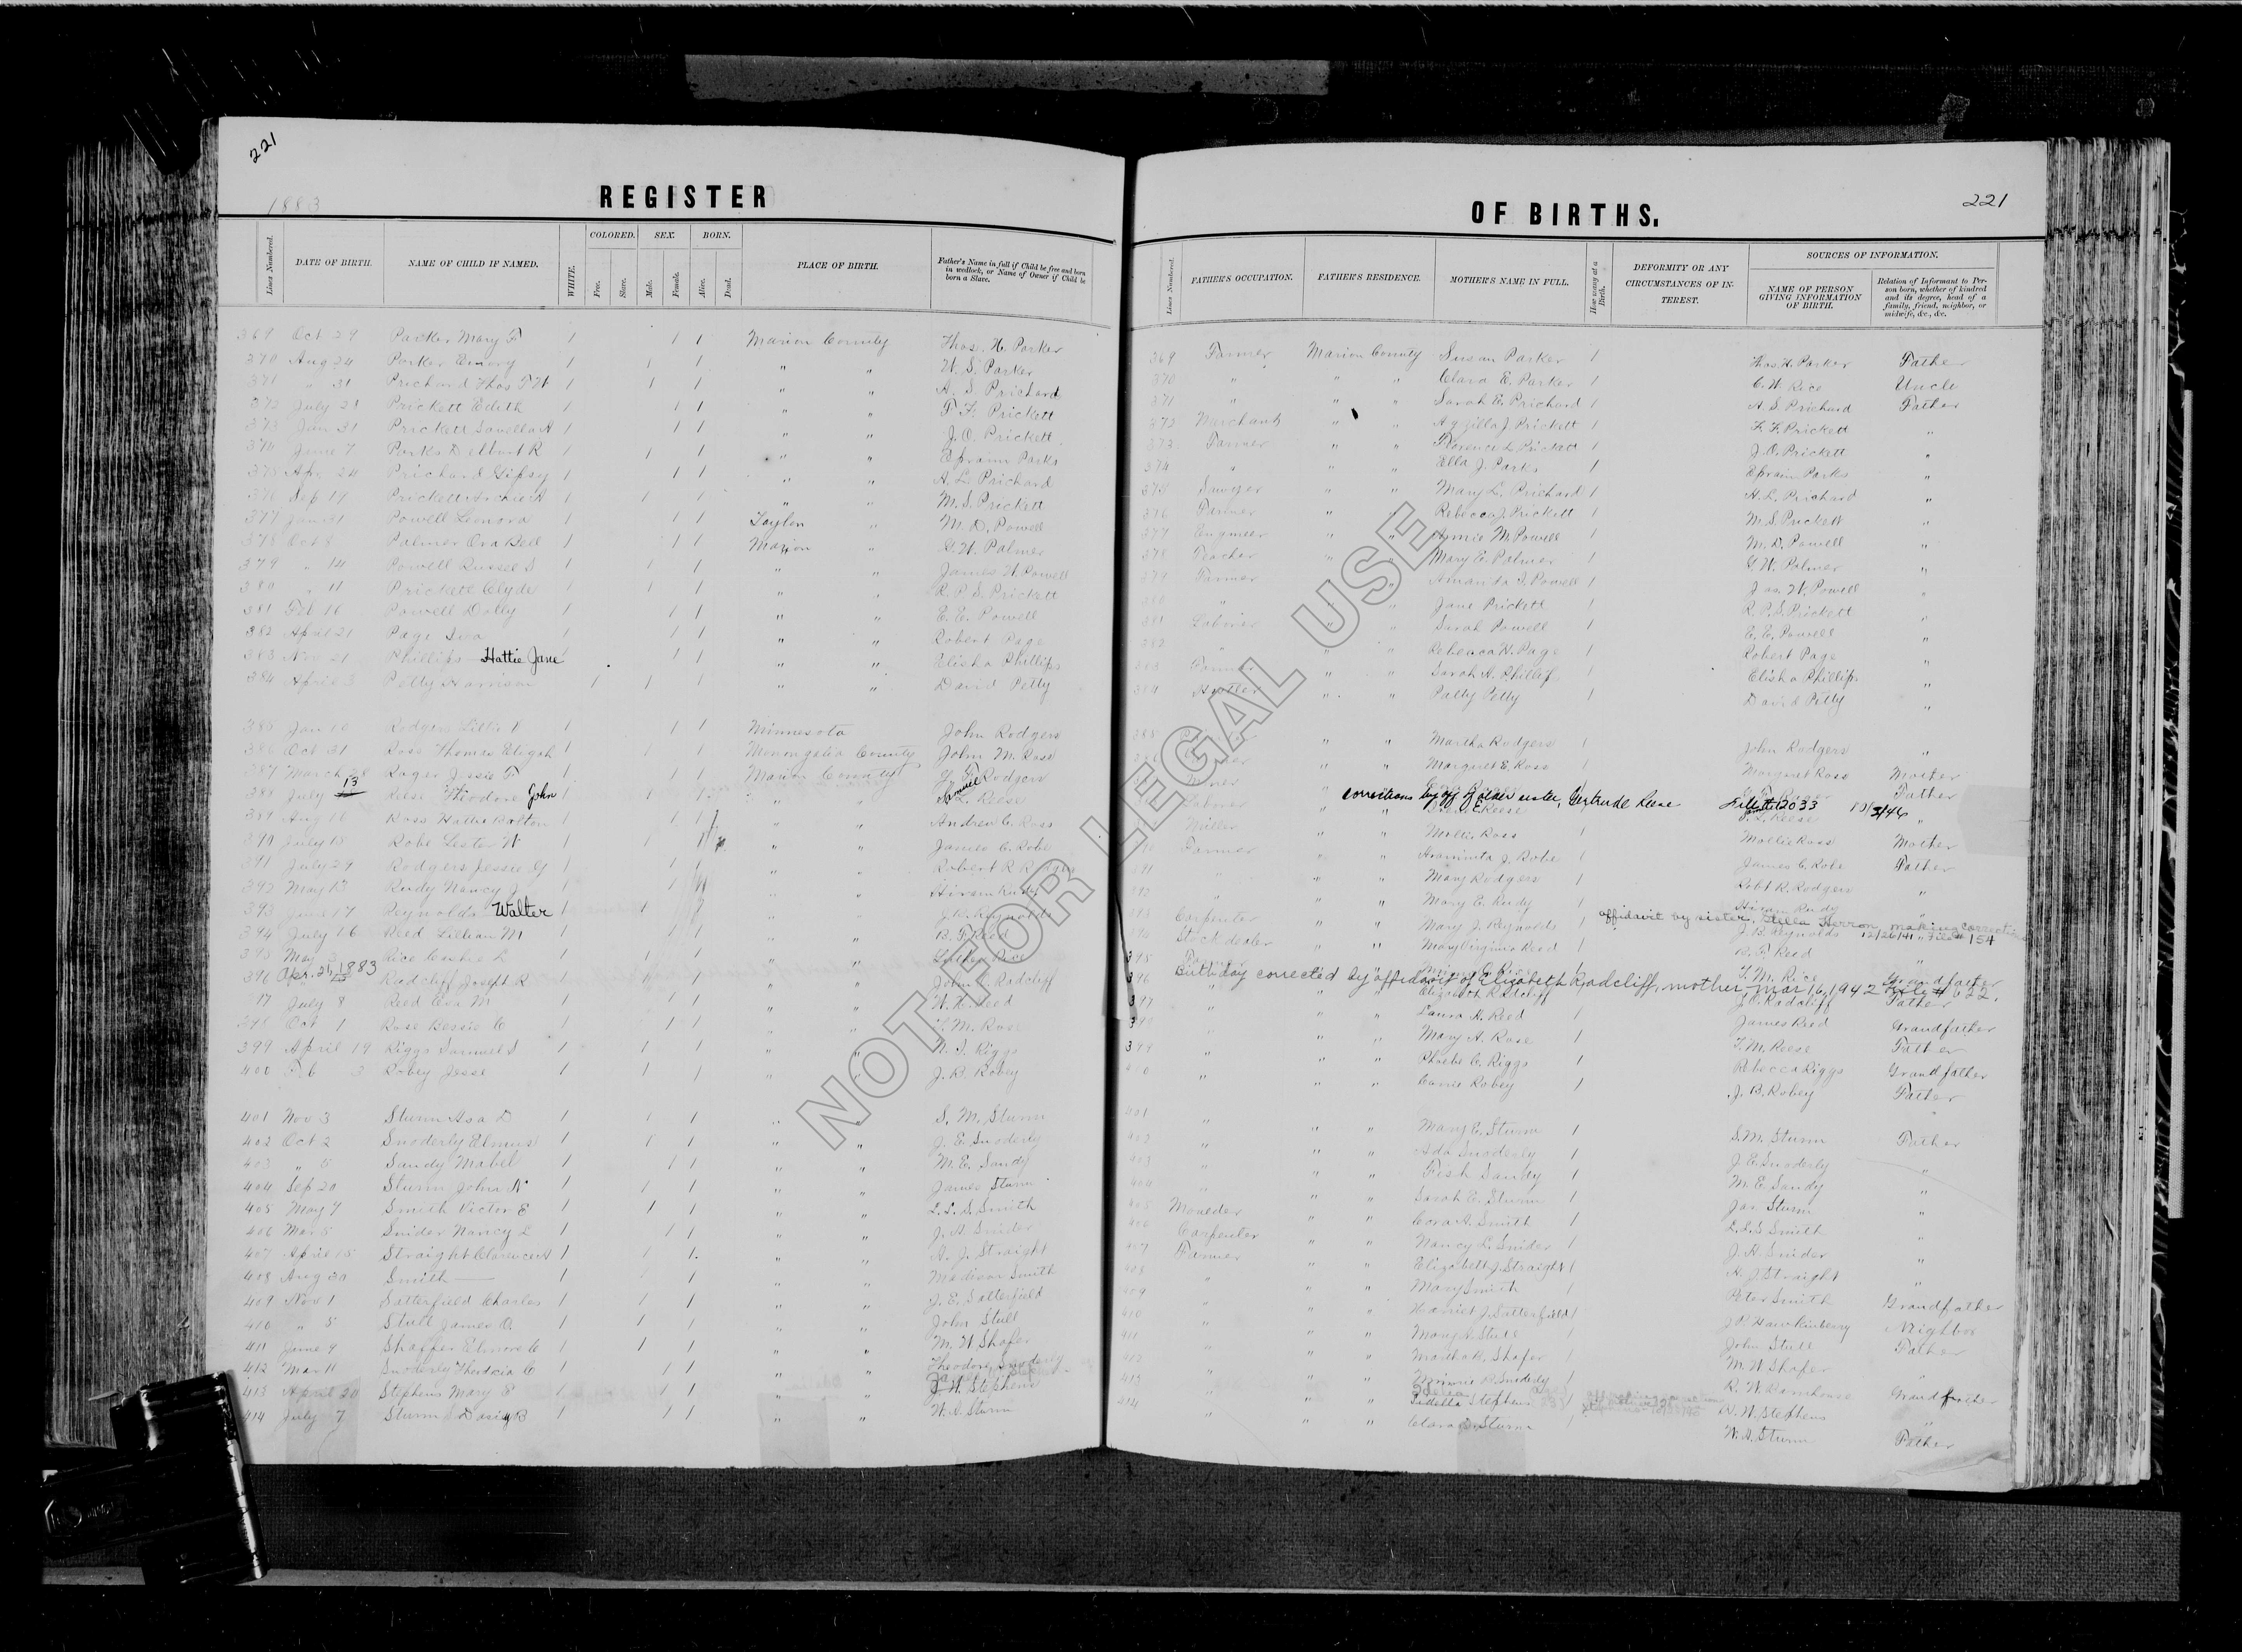 221
1883
REGISTER
Lines Numbered. DATE OF BIRTH. NAME OF CHILD IF NAMED. WHITE. COLORED. Free. Slave. SEX. Male. Female. BORN. Alive. Dead. PLACE OF BIRTH. Father's Name in full if Child be free and born in wedlock, or Name of Owner if Child be born a Slave.
369 Oct 29 Parker Mary F 1 1 1 Marion County Thos. H. Parker
370 Aug 24 Parker Emory 1 1 1 " " W. S. Parker
371 " 31 Prichard Thos F W 1 1 1 " " A. S. Prichard
372 July 28 Prickett Edith 1 1 1 " " F. F. Prickett
373 Jan 31 Prickett Lovella A 1 1 1 " " J. O. Prickett
374 June 7 Parks Delbert R 1 1 1 " " Ephraim Parks
375 Apr. 24 Prichard Gipsy 1 1 1 " " A. L. Prichard
376 Sep 19 Prickett Archie A 1 1 1 " " M. S. Prickett
377 Jan 31 Powell Leonora 1 1 1 Taylor " M. D. Powell
378 Oct 8 Palmer Ora Bell 1 1 1 Marion " G. W. Palmer
379 " 14 Powell Russel S 1 1 1 " " James W. Powell
380 " 11 Prickett Clyde 1 1 1 " " R. P. S. Prickett
381 Feb 16 Powell Dolly 1 1 1 " " E. E. Powell
382 April 21 Page 1 1 1 " " Robert Page
383 Nov 21 Phillips Hattie Jane 1 1 " " Elisha Phillips
384 April 3 Petty Harrison 1 1 1 " " David Petty
385 Jan 10 Rodgers Lillie 1 1 1 Minnesota John Rodgers
386 Oct 31 Ross Thomas Elizah 1 1 1 Monongalia County John M. Ross
387 March 28 Roger Jessie F 1 1 1 Marion County Y. F. Rodgers
388 July 13 Reese Theodore John 1 1 1 " " Samuel L. Reese
389 Aug 16 Ross Hattie Rolton 1 1 1 " " Andrew C. Ross
390 July 18 Robe Lester W 1 1 1 " " James C. Robe
391 July 29 Rodgers Jessie G 1 1 1 " " Robert R
392 May 13 Rudy Nancy J. 1 1 1 " " Hiram Rudy
393 June 17 Reynolds Walter 1 1 " " J. B. Reynolds
394 July 16 Reed Lillian M 1 1 1 " " B. F. Reed
395 May Rice 1 1 1 " " Luther Rice
396 Apr. 21, 1883 Radcliff Joseph R 1 1 1 " " John C. Radcliff
397 July 8 Reed Eva M 1 1 1 " " W. H. Reed
398 Oct 1 Rose Bessie C 1 1 1 " " T. M. Rose
399 April 19 Riggs Samuel S 1 1 1 " " Riggs
400 Feb 3 Robey Jesse 1 1 1 " " J. B. Robey
401 Nov 3 Sturm Asa D 1 1 1 " " S. M. Sturm
402 Oct 2 Snoderly Elmus 1 1 1 " " J. E. Snoderly
403 " 5 Sandy Mabel 1 1 1 " " M. E. Sandy
404 Sep 20 Sturm John N 1 1 1 " " James Sturm
405 May 7 Smith Victor E 1 1 1 " " L. L. S. Smith
406 Mar 5 Snider Nancy L 1 1 1 " " J. A. Snider
407 April 15 Straight Clarence A 1 1 1 " " A. J. Straight
408 Aug 30 Smith 1 1 " " Madison Smith
409 Nov 1 Satterfield Charles 1 1 1 " " J. E. Satterfield
410 " 5 Stull James O. 1 1 1 " " John Stull
411 June 9 Shaffer Elmore C 1 1 1 " " M. W. Shafer
412 Mar 11 Snoderly C 1 1 1 " " Theodore Snoderly
413 April 20 Stephens Mary E 1 1 1 " " J. W. Stephens
414 July 7 Sturm Daisy B 1 1 1 " " W. S. Sturm
221
OF BIRTHS.
Lines Numbered. FATHER'S OCCUPATION. FATHER'S RESIDENCE. MOTHER'S NAME IN FULL. How many at a Birth. DEFORMITY OR ANY CIRCUMSTANCES OF INTEREST. SOURCES OF INFORMATION. NAME OF PERSON GIVING INFORMATION OF BIRTH. Relation of Informant to Person born, whether of kindred and its degree, head of a family, friend, neighbor, or midwife, &c., &c.
369 Farmer Marion County Susan Parker 1 Thos. H. Parker Father
370 " " " Clara E. Parker 1 C. W. Rece Uncle
371 " " " Sarah E. Prichard 1 A. S. Prichard Father
372 Merchant " " Azzilla J. Prickett 1 F. F. Prickett "
373 Farmer " " Florence L. Prickett 1 J. O. Prickett "
374 " " " Ella J. Parks 1 Ephraim Parks "
375 Sawyer " " Mary L. Prichard 1 A. L. Prichard "
376 Farmer " " Rebecca J. Prickett 1 M. S. Prickett "
377 Engineer " " Annie M. Powell 1 M. D. Powell "
378 Teacher " " Mary E. Palmer 1 G. W. Palmer "
379 Farmer " Amanda J. Powell 1 Jas. W. Powell "
380 " " Jane Prickett 1 R. P. S. Prickett "
381 Laborer " " Sarah Powell 1 E. E. Powell "
382 " " " Rebecca N. Page 1 Robert Page "
383 Farmer " " Sarah A. Phillips 1 Elisha Phillips "
384 Hostler " " Patty Petty 1 David Petty "
385 " " Martha Rodgers 1 John Rodgers "
" " Margaret E. Ross 1 Margaret Ross Mother
Miner Father
corrections by aff of older sister, Gertrude Reese File # 12033
Farmer " " Reese L. Reese "
Miller " " Mollie Ross 1 Mollie Ross Mother
Farmer " " Araminta J. Robe 1 James C. Robe Father
391 " " " Mary Rodgers 1 Robt R. Rodgers "
392 " " " Mary E. Rudy 1 Hiram Rudy "
affidavit by sister, Stella Herron making correction
Carpenter " " Mary J. Reynolds 1 J. B. Reynolds 12/26/41 File # 154
Stock dealer " " Mary Virginia Reed 1 B. F. Reed "
395 T. M. Rice Grandfather
396 Birthday corrected by affidavit of Elizabeth Radcliff, mother Mar 16, 1942 File # 622.
" " " Elizabeth Radcliff J. C. Radcliff Father
397 " " " Laura H. Reed 1 James Reed Grandfather
" " " Mary A. Rose 1 T. M. Reese Father
399 " " " Phoebe C. Riggs 1 Rebecca Riggs Grandfather
" " " Carrie Robey 1 J. B. Robey Father
401 " " " Mary E. Sturm 1 S. M. Sturm Father
" " " Ada Snoderly 1 J. E. Snoderly "
" " " Fish Sandy 1 M. E. Sandy "
404 " " " Sarah E. Sturm 1 Jas. Sturm "
405 Moulder " " Cora A. Smith 1 L. L. S. Smith "
406 Carpenter " " Nancy L. Snider 1 J. A. Snider "
407 Farmer " " Elizabeth J. Straight 1 A. J. Straight "
408 " " " Mary Smith 1 Peter Smith Grandfather
409 " " " Harriet J. Satterfield 1 J. P. Hawkinberry Neighbor
410 " " " Mary Stull 1 John Stull Father
411 " " " Martha B. Shafer 1 M. W. Shafer "
412 " " " Minnie R. Snoderly 1 R. W. Barnhouse Grandfather
413 " " " Stephens 1 N. W. Stephens "
" " " Clara Sturm 1 W. S. Sturm Father
NOT FOR LEGAL USE